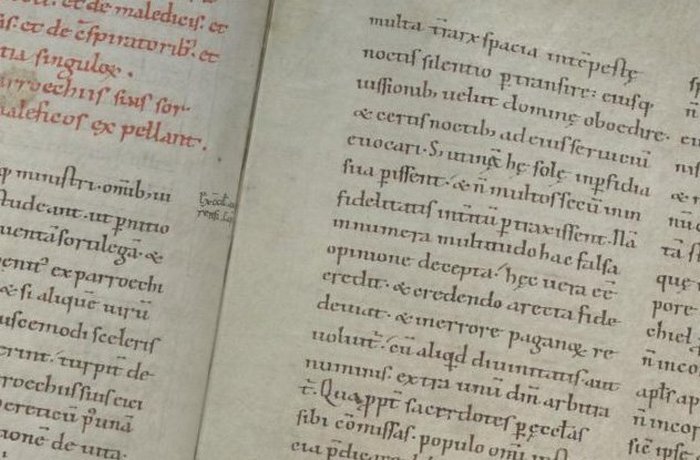 et de maledicis. et
et de c̄spiratorib; et
tia singuloꝝ.
arroechiis suis sor
maleficos ex pellant.
ministri. om̄ib; ui
studeant. ut pnitio
uentā sortilegā &
ex parroechi
& si aliquē uirū
uscemodi sceleris
erint. turpit̄ de
rroechiis suis eici
hereticū
tionē de uita.
multa tr̄arꝝ spacia intēpestę
noctis silentio ꝑtransire: eiusq;
iussionib; uelut dominę oboedire.
& certis noctib; ad eius seruiciū
euocari. S; utinā hę solę in ꝑfidia
sua ꝑissent. & n̄ multos secū in in
fidelitatis int̄itū ꝑtraxissent. Nā
innumera multitudo hac falsa
opinione decepta. hęc uera eē
credit. & credendo a recta fide
deuiat. & in errore paganoꝝ re
uoluit̄. cū aliqd diuinitatis aut
numinis. extra unū dm̄ arbitra
t̄. Qua ppt̄ sacerdotes ꝑ ęcclas
sibi cōmissas. populo om̄i ins
cia p̄dicare
sp
n̄
e
nis
& n
nū
tā
quę
pore
chiel
n̄ inco
apl̄s ap
n̄ incor
siē ipse